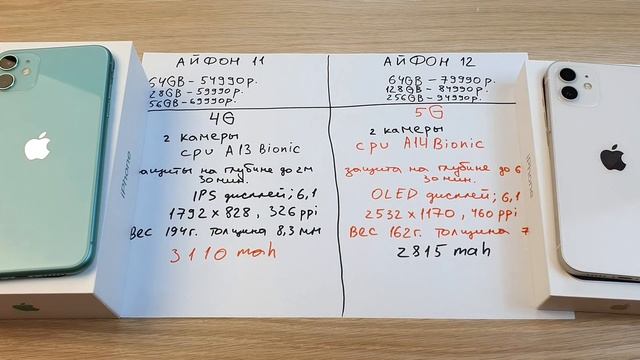 АЙФОН 11
64GB – 54990р.
28GB – 59990р.
56GB – 69990р.
4G
2 камеры
cpu A13 Bionic
защиты на глубине до 2м
30 мин.
IPS дисплей; 6,1
1792 x 828, 326 ppi
Вес 194г. толщина 8,3 мм
3110 mah
АЙФОН 12
64GB – 79990р.
128GB – 84990р.
256GB – 94990р.
5G
2 камеры
cpu A14 Bionic
защита на глубине до 6
30 мин.
OLED дисплей; 6,1
2532 x 1170, 460 ppi
Вес 162г. толщина 7
2815 mah
iPhone